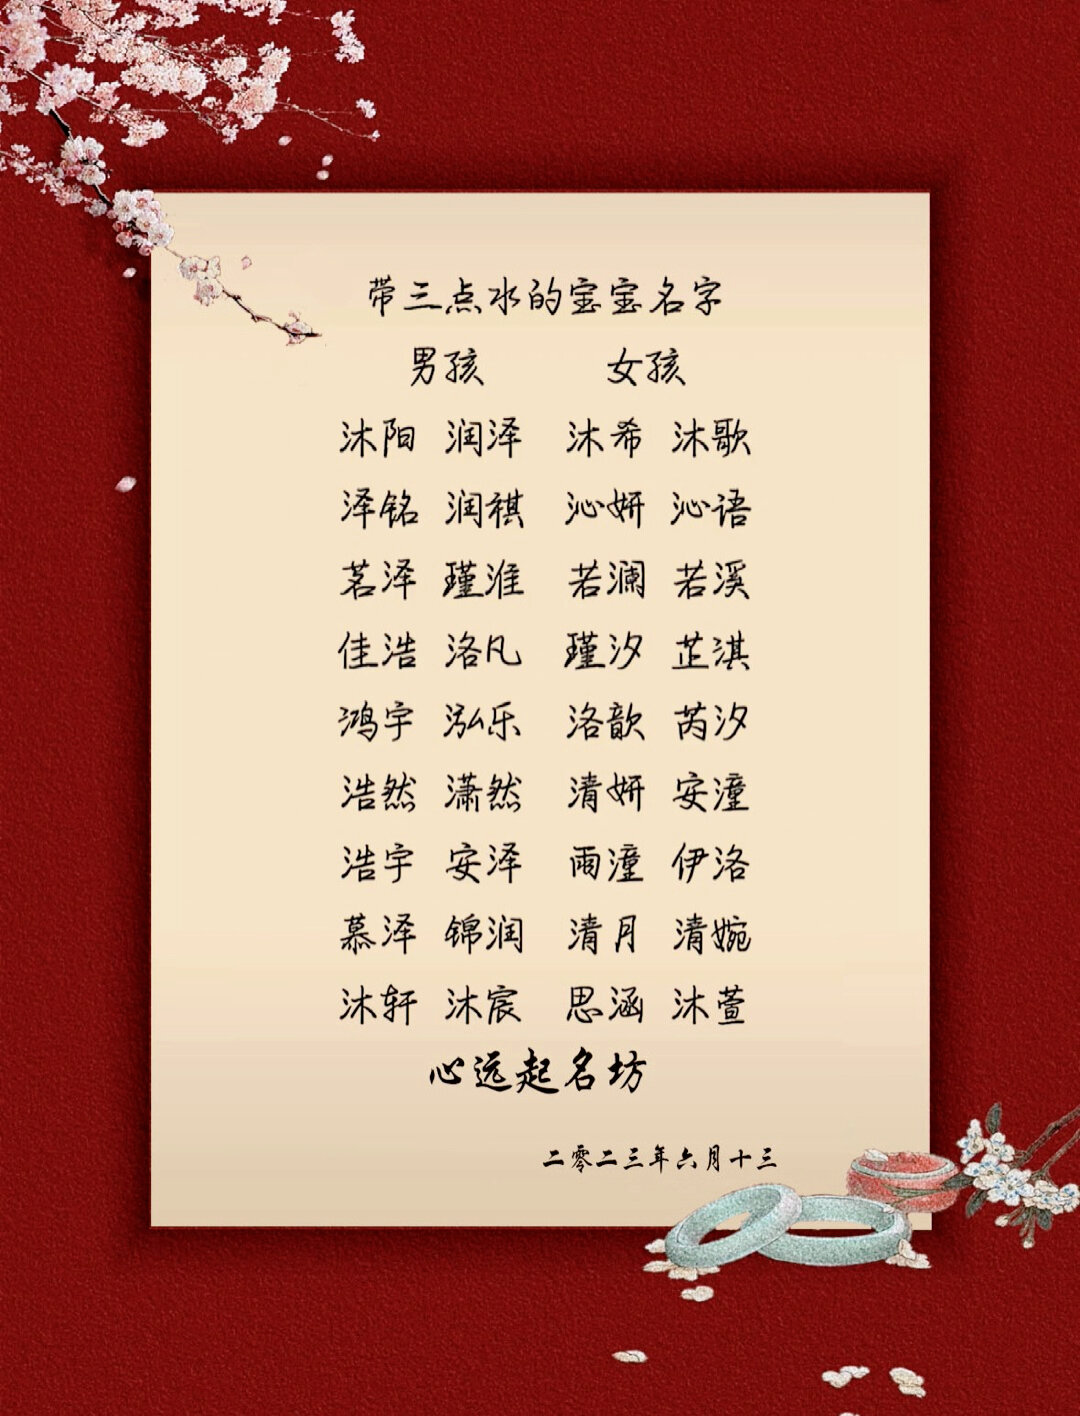 带三点水的宝宝名字
男孩 女孩
沐阳 润泽 沐希 沐歌
泽铭 润祺 沁妍 沁语
茗泽 瑾淮 若澜 若溪
佳浩 洛凡 瑾汐 芷淇
鸿宇 泓乐 洛歆 芮汐
浩然 潇然 清妍 安潼
浩宇 安泽 雨潼 伊洛
慕泽 锦润 清月 清婉
沐轩 沐宸 思涵 沐萱
心远起名坊
二零二三年六月十三